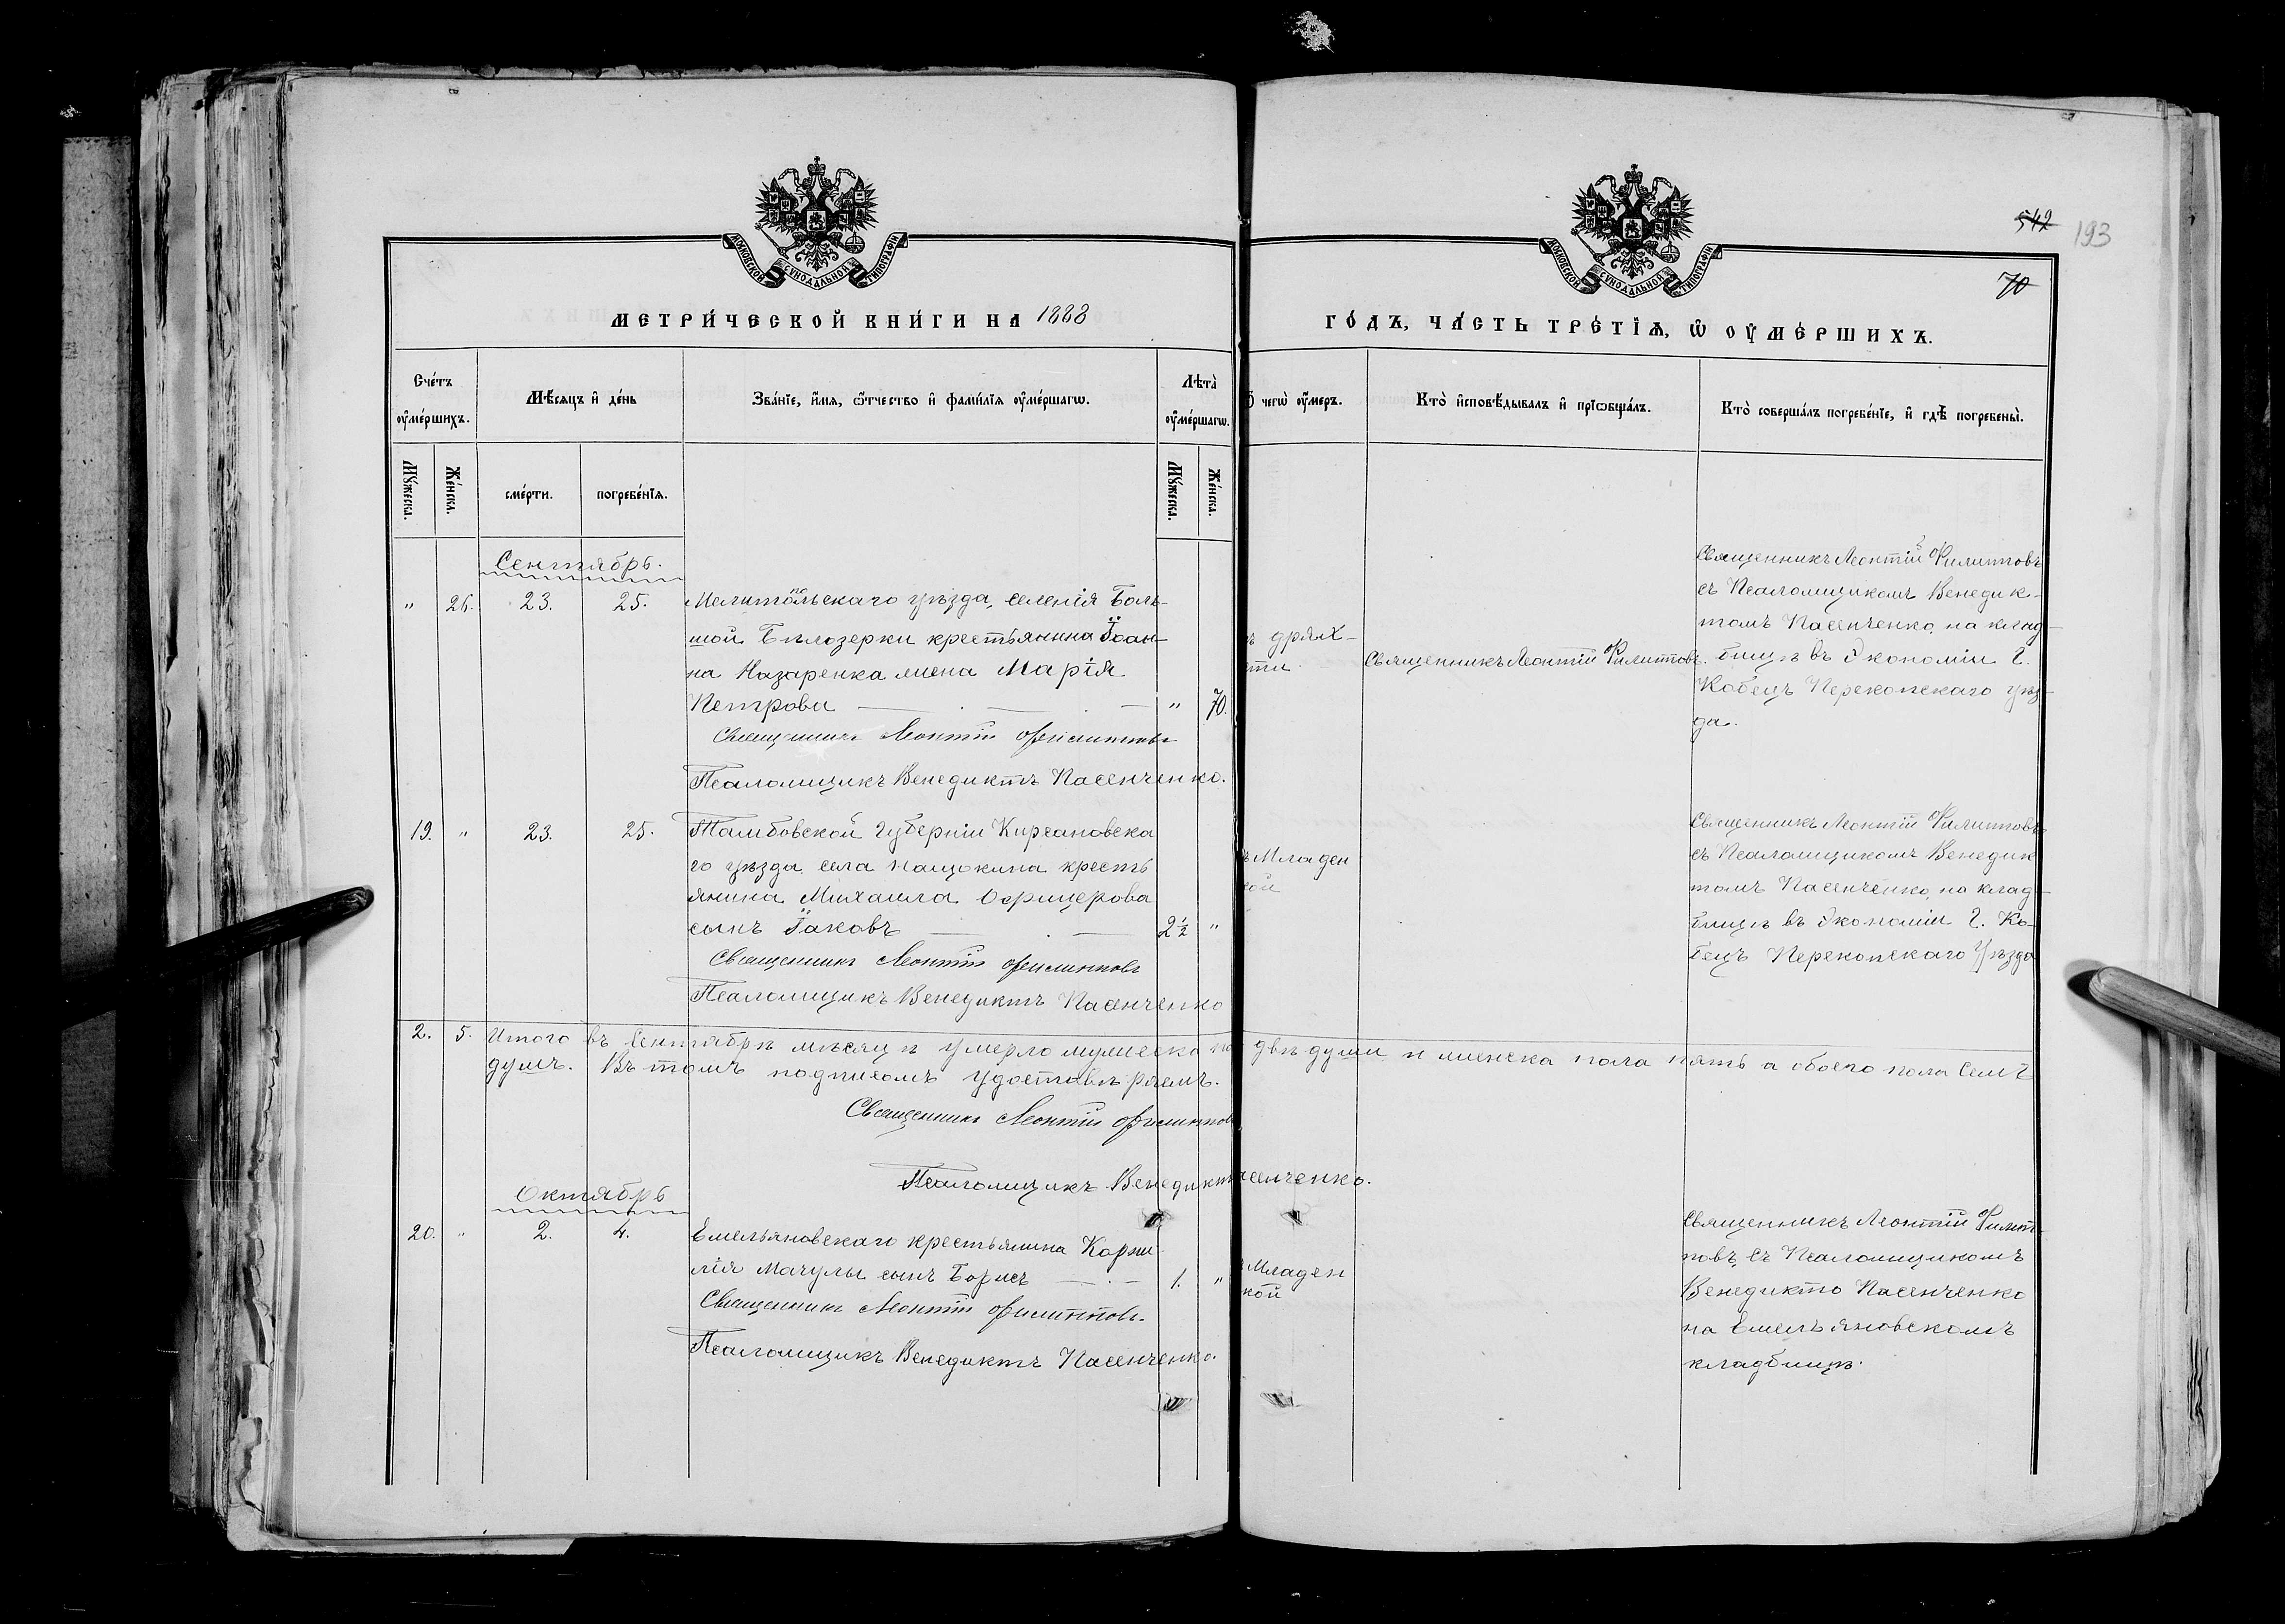 542 193
70
МОСКОВСКОЙ СѴНОДАЛЬНОЙ ТИПОГРАФІИ
МОСКОВСКОЙ СѴНОДАЛЬНОЙ ТИПОГРАФІИ
МЕТРИ́ЧЕСКОЙ КНИ́ГИ НА 1888
ГО́ДЪ, ЧА́СТЬ ТРЕ́ТІѦ, Ѡ҆ ОУ҆МЕ́РШИХЪ.
Сче́тъ оу҆ме́ршихъ.
Мѣ́сяцъ и҆ де́нь
Зва́нїе, и҆́мѧ, ѻ҆́тчество и҆ фами́лїѧ оу҆ме́ршагѡ.
Лѣта̀ оу҆ме́ршагѡ.
чегѡ̀ оу҆́меръ.
Кто̀ и҆сповѣ́дывалъ и҆ прїѡбща́лъ.
Кто̀ соверша́лъ погребе́нїе, и҆ гдѣ̀ погребены̀.
Мꙋ́жеска.
Же́нска.
сме́рти.
погребе́нїѧ.
Мꙋ́жеска.
Же́нска.
Сентябрь.
" 26. 23. 25.
Мелитопольскаго уѣзда, селенія Боль-
шой Бѣлозерки крестьянина Іоан-
на Назаренка жена Марія
Петрова — . — . — " 70.
Священникъ Леонтій Филипповъ
Псаломщикъ Венедиктъ Пасенченко.
ъ дрях-
сти
Священникъ Леонтій Филипповъ.
Священникъ Леонтій Филипповъ
съ Псаломщикомъ Венедик-
томъ Пасенченко, на клад-
бищѣ въ Экономіи Г.
Кобецъ Перекопскаго уѣз-
да.
19. " 23. 25.
Тамбовской Губерніи Кирсановска
го уѣзда села Нащокина кресть
янина Михаила Офицерова
сынъ Іаковъ — . — 2½ "
Священникъ Леонтій Филипповъ
Псаломщикъ Венедиктъ Пасенченко
ъ Младен
кой
Священникъ Леонтій Филипповъ
съ Псаломщикомъ Венедик
томъ Пасенченко, на клад-
бищѣ въ Экономіи Г. Ко-
бецъ Перекопскаго Уѣзда
2. 5. Итого въ Сентябрѣ мѣсяцѣ умерло мужеска по двѣ души и женска пола пять а обоего пола Семь
душъ. Въ томъ подписомъ удостовѣряемъ.
Священникъ Леонтій Филиппов
Псаломщикъ Венедикт асенченко.
Октябрь
20. " 2. 4.
Емельяновскаго крестьянина Корни-
лія Мачулы сынъ Борисъ — . — 1. "
Священникъ Леонтій Филипповъ.
Псаломщикъ Венедиктъ Пасенченко.
Младен
кой
Священникъ Леонтій Филип-
повъ съ Псаломщикомъ
Венедикто Пасенченко
на Емельяновскомъ
кладбищѣ.